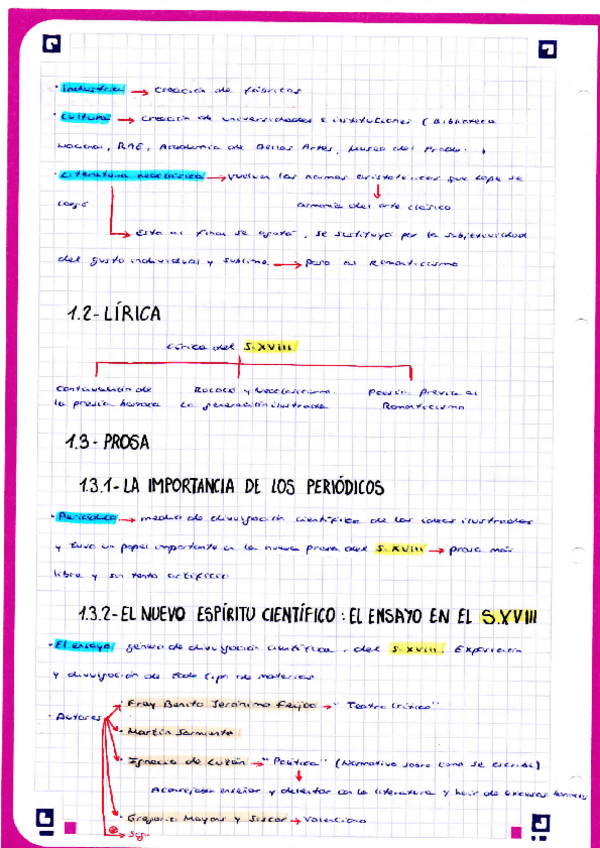 · Industria → creación de fábricas
· Cultura → creación de universidades e instituciones (Biblioteca
Nacional, RAE, Academia de Bellas Artes, Museo del Prado.
· Literatura neoclásica → vuelven las normas aristotélicas que Lope se
cargó
armonía del arte clásico
→ Esto al final se agota, se sustituye por la subjetividad
del gusto individual y sublime → paso al Romanticismo
1.2- LÍRICA
Lírica del S.XVIII
continuación de Rococó y Neoclasicismo Poesía previa al
la poesía barroca La generación ilustrada Romanticismo
1.3- PROSA
1.3.1- LA IMPORTANCIA DE LOS PERIÓDICOS
· Periódico → medio de divulgación científica de las ideas ilustradas
y tuvo un papel importante en la nueva prosa del S.XVIII → prosa más
libre y sin tanto artificio
1.3.2- EL NUEVO ESPÍRITU CIENTÍFICO: EL ENSAYO EN EL S.XVIII
· El ensayo: género de divulgación científica del S.XVIII. Exposición
y divulgación de todo tipo de materias
· Fray Benito Jerónimo Feijoo → "Teatro Crítico"
· Autores
· Martín Sarmiento
· Ignacio de Luzán → "Poética" (Normativa sobre como se escribe)
Aconsejaba enseñar y deleitar con la literatura y huir de excesos
· Gregorio Mayans y Siscar → Valenciano